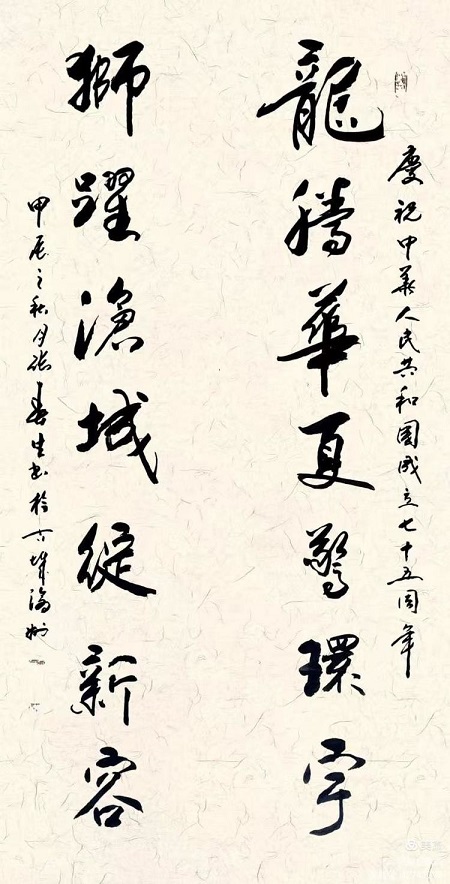 慶祝中華人民共和國成立七十五周年
龍騰華夏驚環宇
獅躍滄城綻新容
甲辰之秋月張春生書於古城滄州